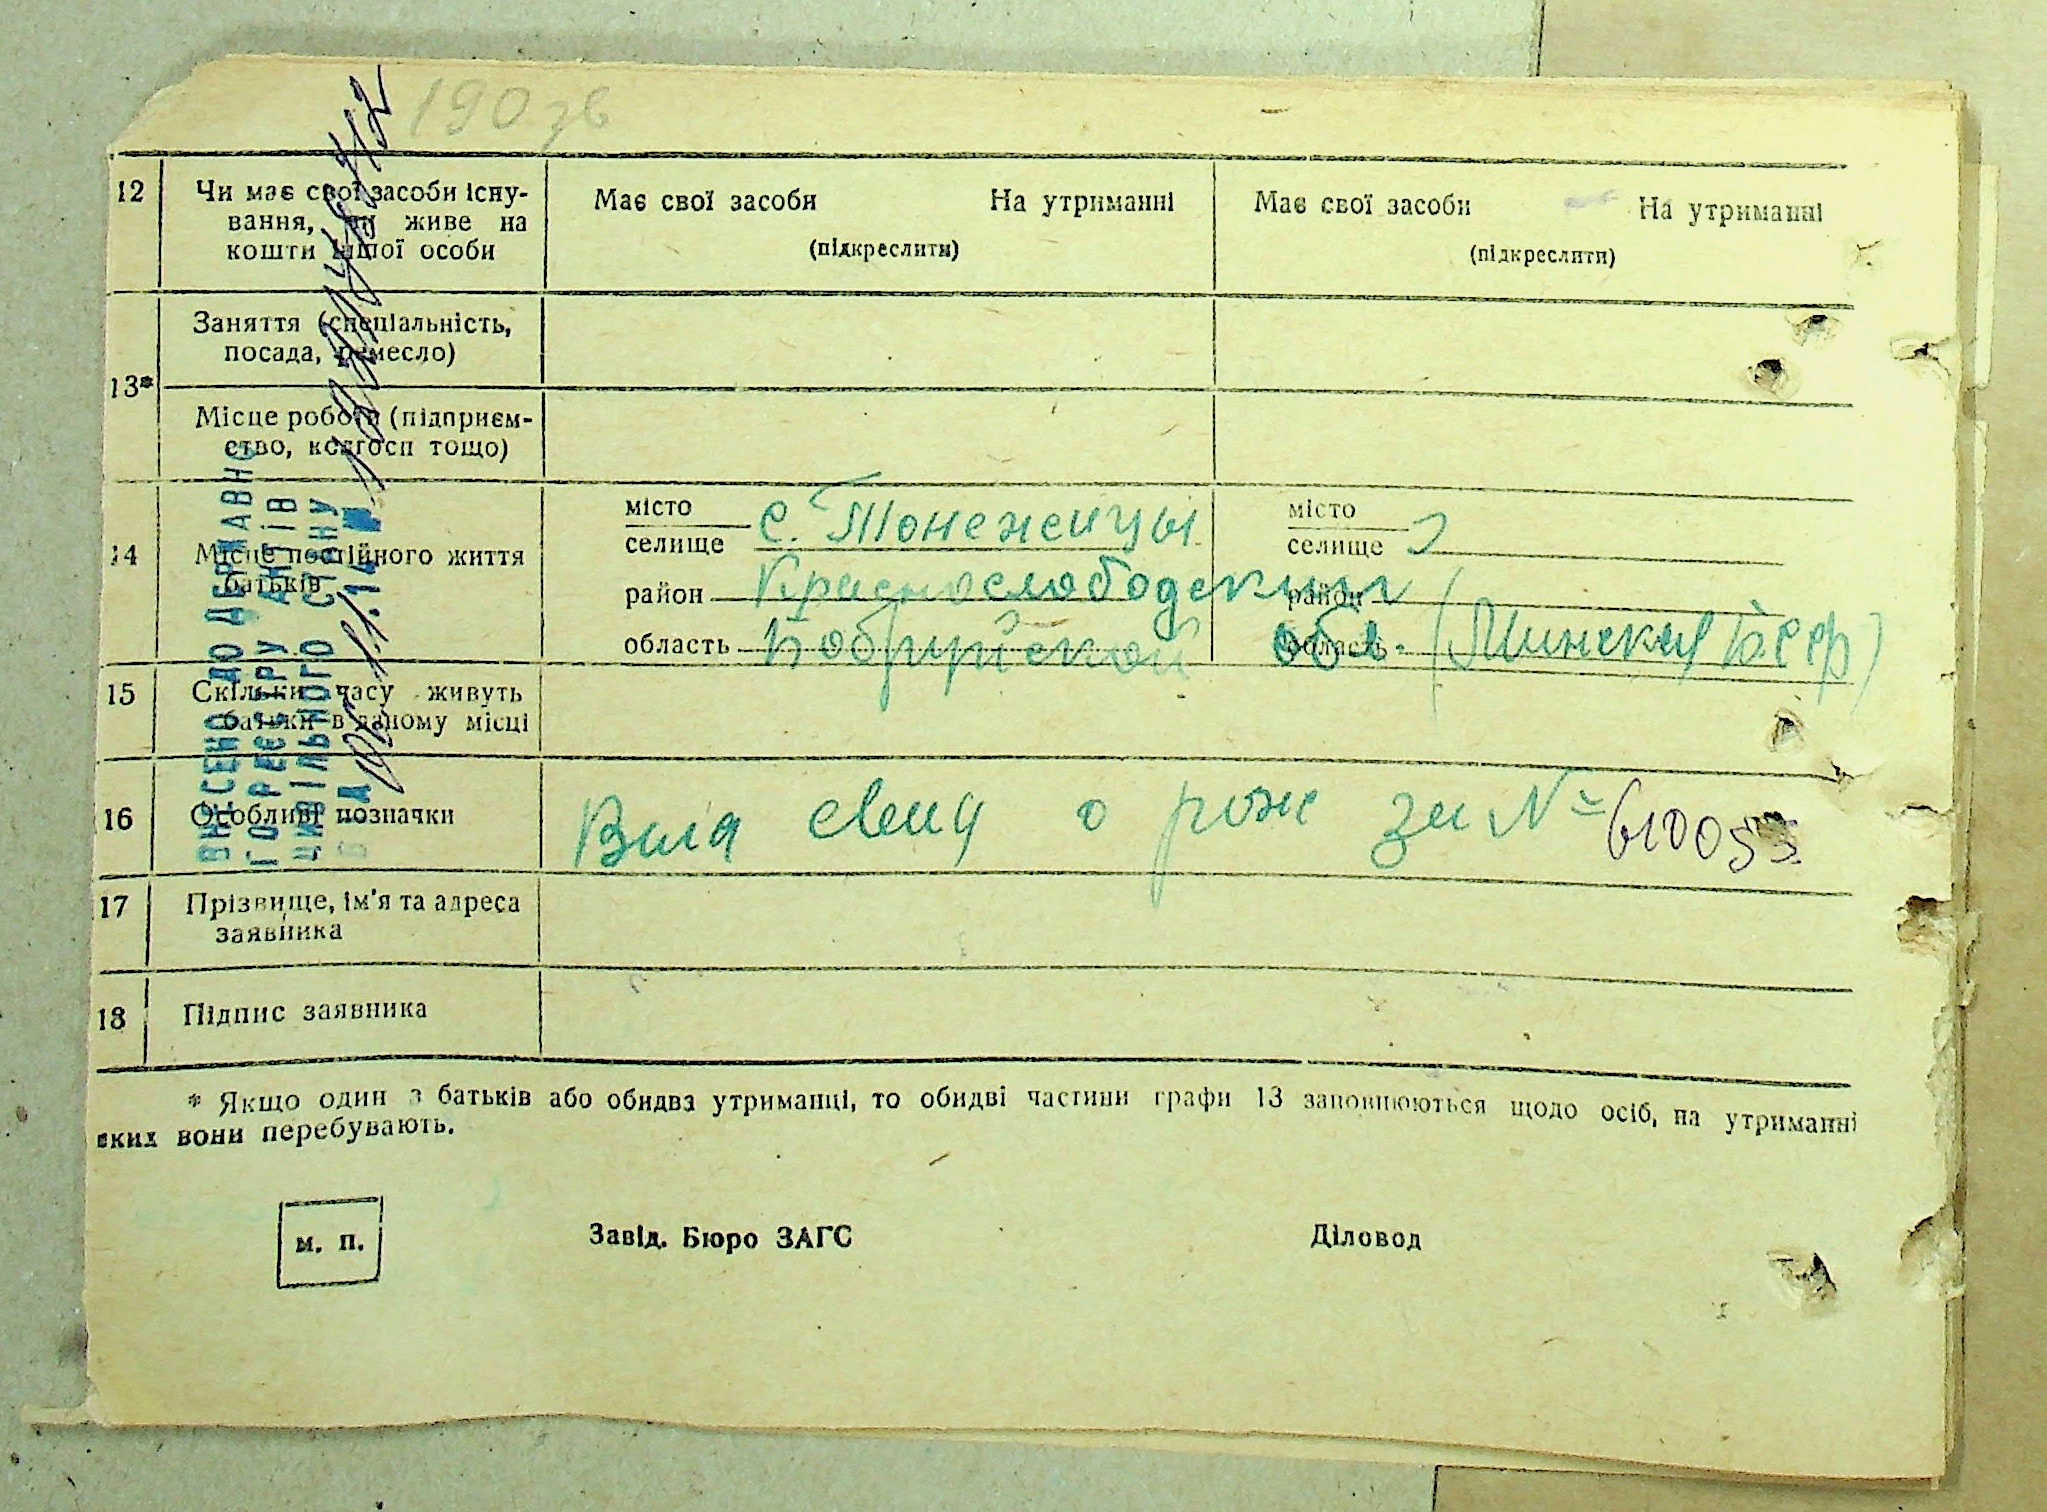 190 зв
12 Чи має свої засоби існу-
вання, чи живе на
кошти іншої особи
Має свої засоби На утриманні
(підкреслити)
Має свої засоби На утриманні
(підкреслити)
13* Заняття (спеціальність,
посада, ремесло)
Місце роботи (підприєм-
ство, колгосп тощо)
14 Місце постійного життя
батьків
місто
селище с. Тонежицы
район Краснослободский
область Бобруйской обл. (Минская БССР)
місто
селище
район
область
15 Скільки часу живуть
батьки в даному місці
16 Особливі позначки
свид о рож за № 610053
17 Прізвище, ім'я та адреса
заявника
18 Підпис заявника
* Якщо один з батьків або обидва утриманці, то обидві частини графи 13 заповнюються щодо осіб, на утриманні
яких вони перебувають.
м. п.
Завід. Бюро ЗАГС
Діловод
ВНЕСЕНО ДО ДЕРЖАВНО
ГО РЕЄСТРУ АКТІВ
ЦИВІЛЬНОГО СТАНУ